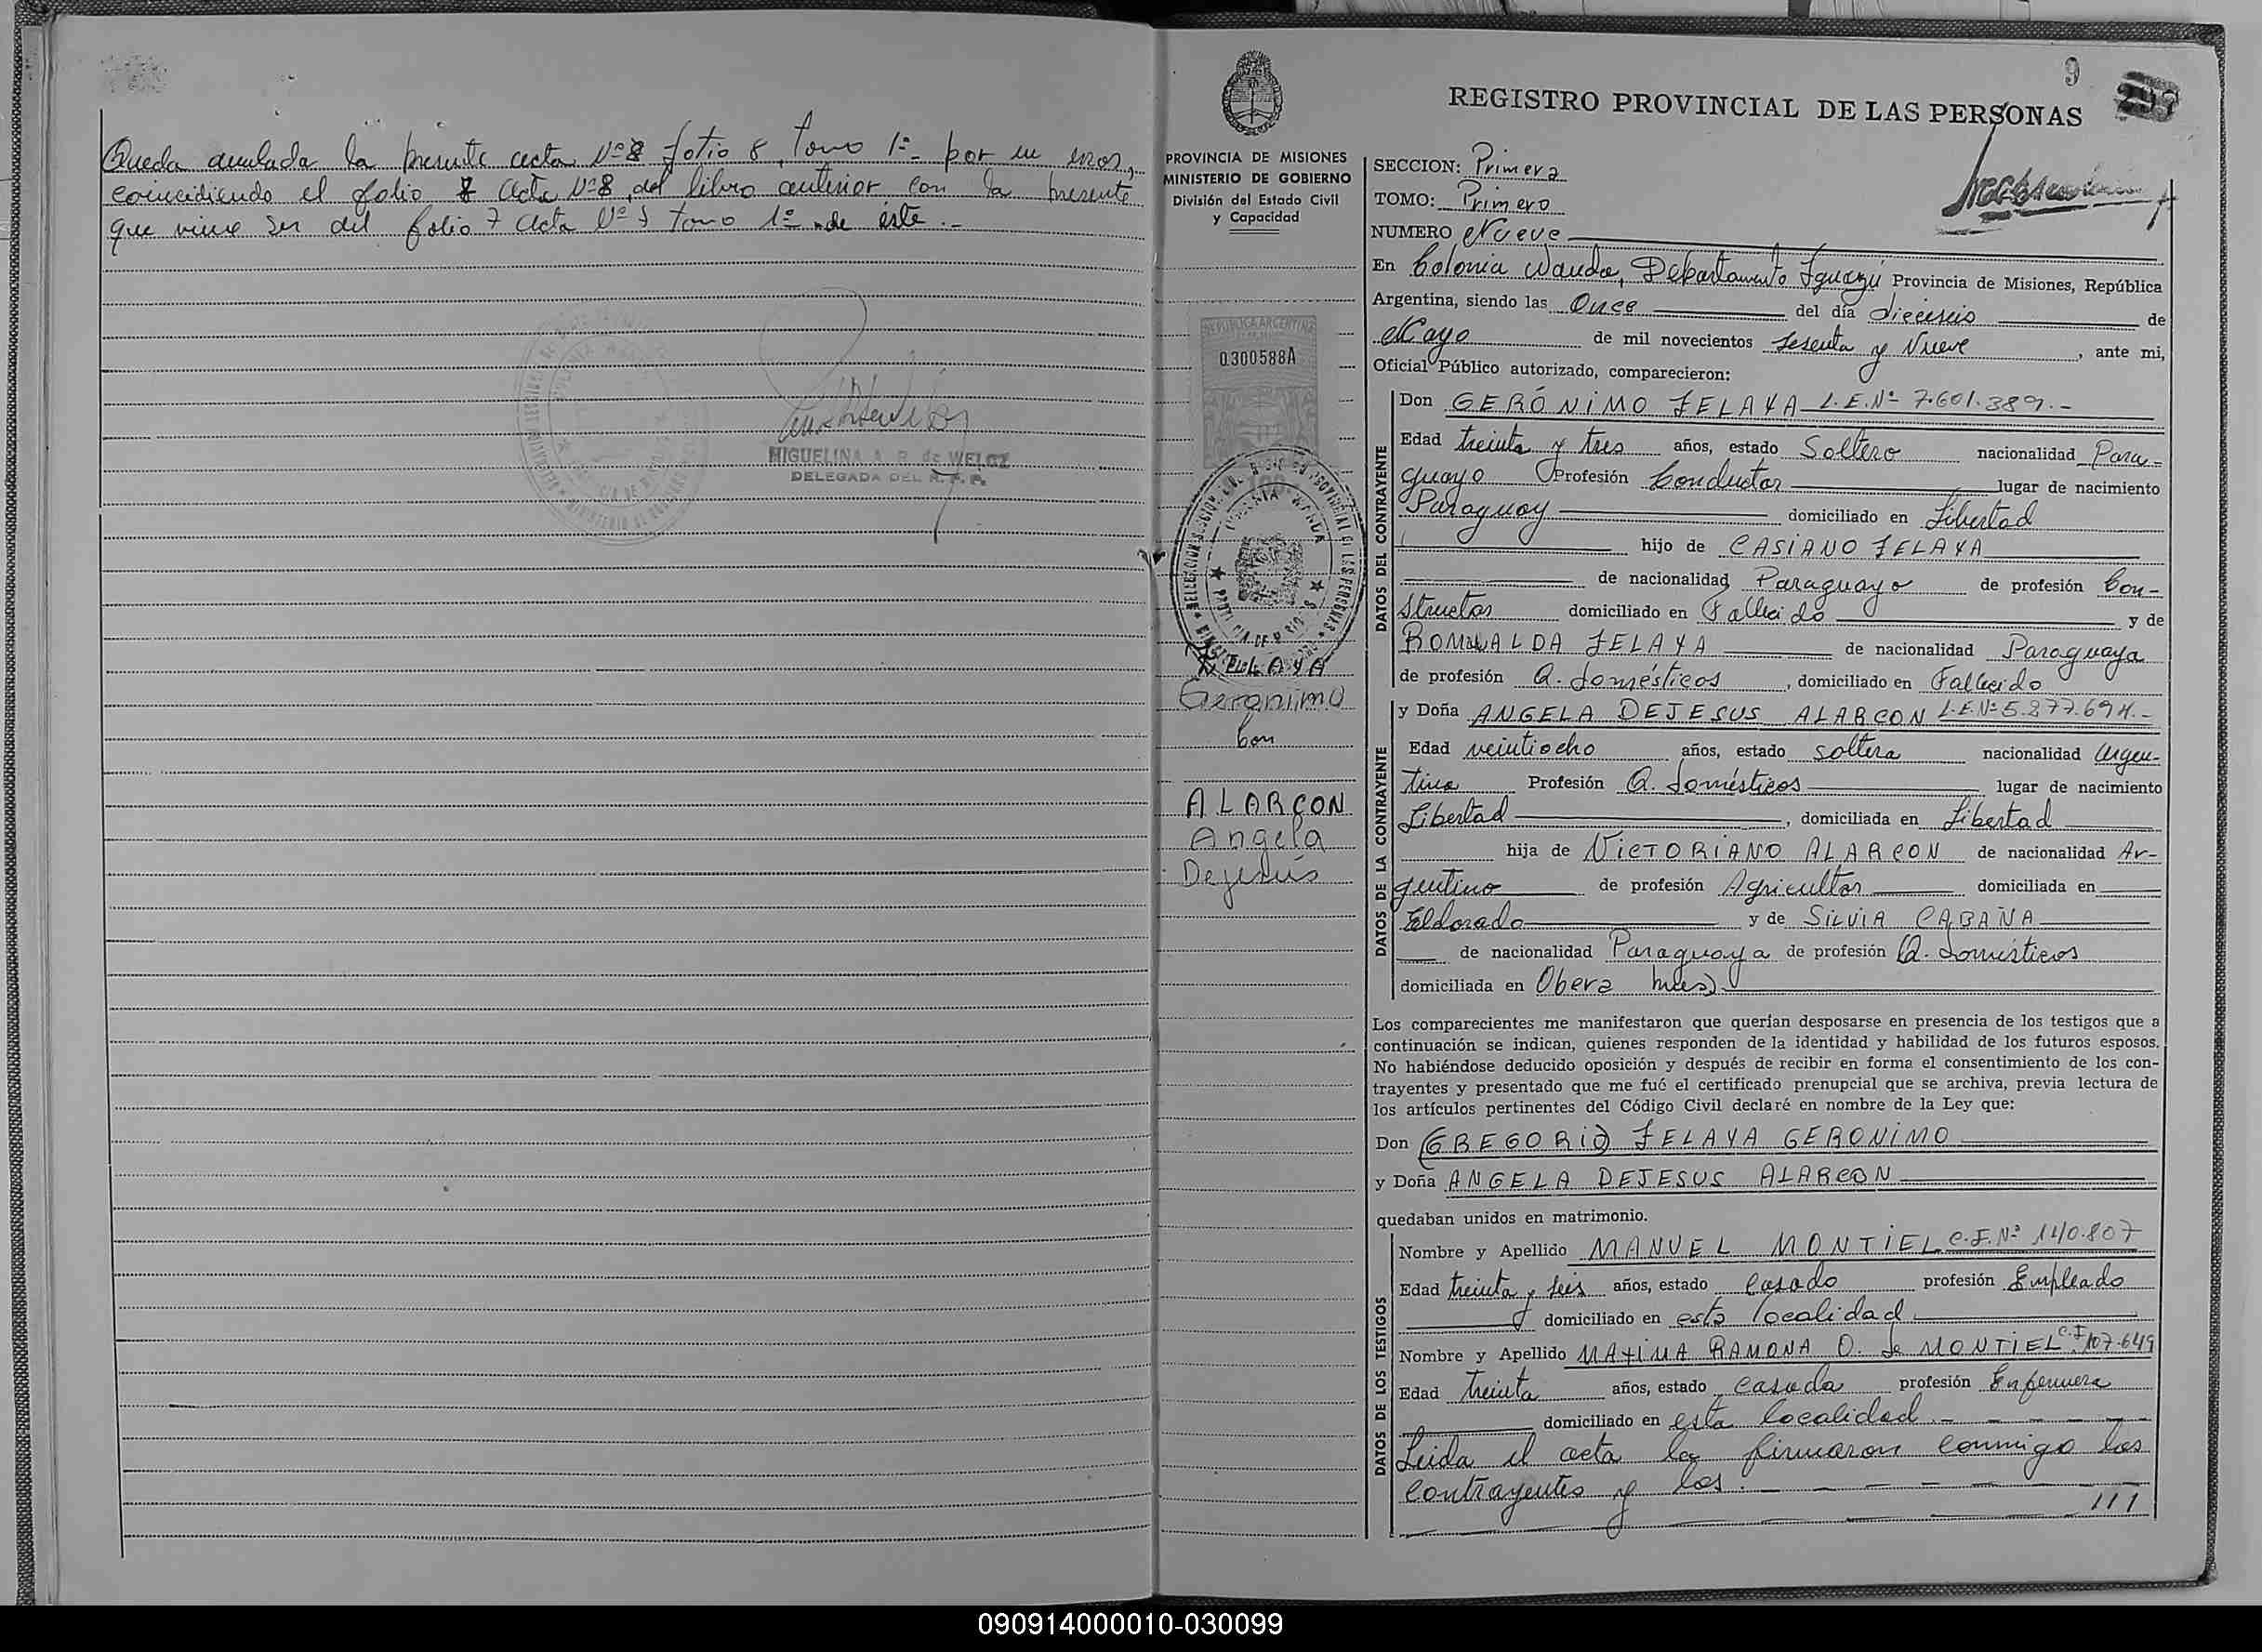 Queda anulada la presente acta Nº 8 folio 8, Tomo 1º- por un error,
coincidiendo el folio 8 acta Nº 8, del libro anterior con la presente
que viene ser del folio 7 acta Nº tomo 1º de éste.-
MIGUELINA A. R. de WELOZ
DELEGADA DEL R. P. P.
9
REGISTRO PROVINCIAL DE LAS PERSONAS
PROVINCIA DE MISIONES
MINISTERIO DE GOBIERNO
División del Estado Civil
y Capacidad
REPUBLICA ARGENTINA
0300588A
ZELAYA
Geronimo
con
ALARCON
Angela
Dejesús
SECCION: Primera
TOMO: Primero
NUMERO Nueve
En Colonia Wanda, Departamento Iguazú Provincia de Misiones, República
Argentina, siendo las Once del día dieciseis de
Mayo de mil novecientos sesenta y Nueve, ante mi,
Oficial Público autorizado, comparecieron:
DATOS DEL CONTRAYENTE
Don GERÓNIMO ZELAYA L.E.Nº 7.601.389.-
Edad treinta y tres años, estado Soltero nacionalidad Para-
guayo Profesión Conductor lugar de nacimiento
Paraguay domiciliado en Libertad
hijo de CASIANO ZELAYA
de nacionalidad Paraguayo de profesión Con-
structor domiciliado en Fallecido y de
ROMUALDA ZELAYA de nacionalidad Paraguaya
de profesión Q. domésticos, domiciliado en Fallecido
DATOS DE LA CONTRAYENTE
y Doña ANGELA DEJESUS ALARCON L.E.Nº 5.877.694.-
Edad veintiocho años, estado soltera nacionalidad Argen-
tina Profesión Q. domésticos lugar de nacimiento
Libertad, domiciliada en Libertad
hija de VICTORIANO ALARCON de nacionalidad Ar-
gentino de profesión Agricultor domiciliada en
Eldorado y de SILVIA CABAÑA
de nacionalidad Paraguaya de profesión Q. domésticos
domiciliada en Obera Mnes.
Los comparecientes me manifestaron que querían desposarse en presencia de los testigos que a
continuación se indican, quienes responden de la identidad y habilidad de los futuros esposos.
No habiéndose deducido oposición y después de recibir en forma el consentimiento de los con-
trayentes y presentado que me fué el certificado prenupcial que se archiva, previa lectura de
los artículos pertinentes del Código Civil declaré en nombre de la Ley que:
Don (GREGORIO) ZELAYA GERONIMO
y Doña ANGELA DEJESUS ALARCON
quedaban unidos en matrimonio.
DATOS DE LOS TESTIGOS
Nombre y Apellido MANUEL MONTIEL C.I.Nº 140.807
Edad treinta y seis años, estado casado profesión Empleado
domiciliado en esta localidad
Nombre y Apellido MAXIMA RAMONA O. de MONTIEL C.I 107.649
Edad treinta años, estado casada profesión Enfermera
domiciliado en esta localidad.-
Leida el acta la firmaron conmigo los
contrayentes y los.
111
090914000010-030099